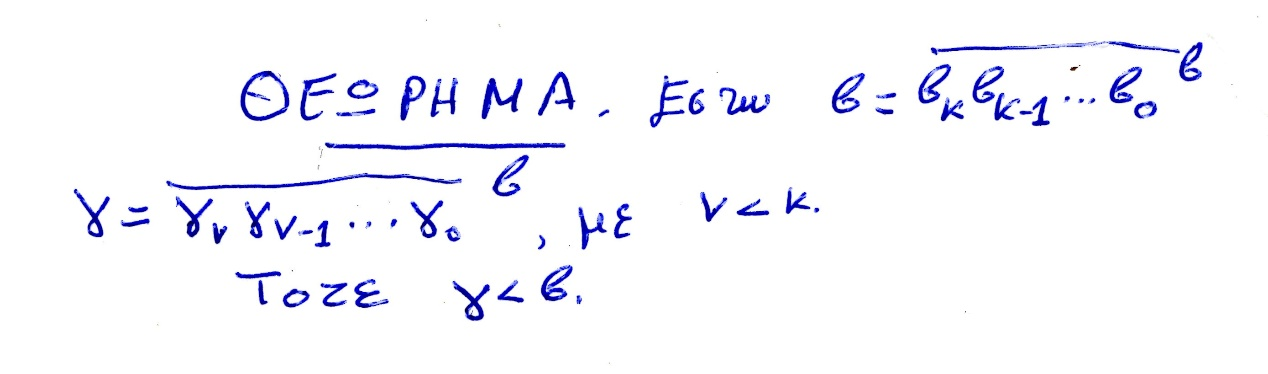 ΘΕΩΡΗΜΑ. Εστω β = β_κ β_{κ-1} ... β_0 ^β
γ = γ_ν γ_{ν-1} ... γ_0 ^β , με ν < κ.
Τοτε γ < β.